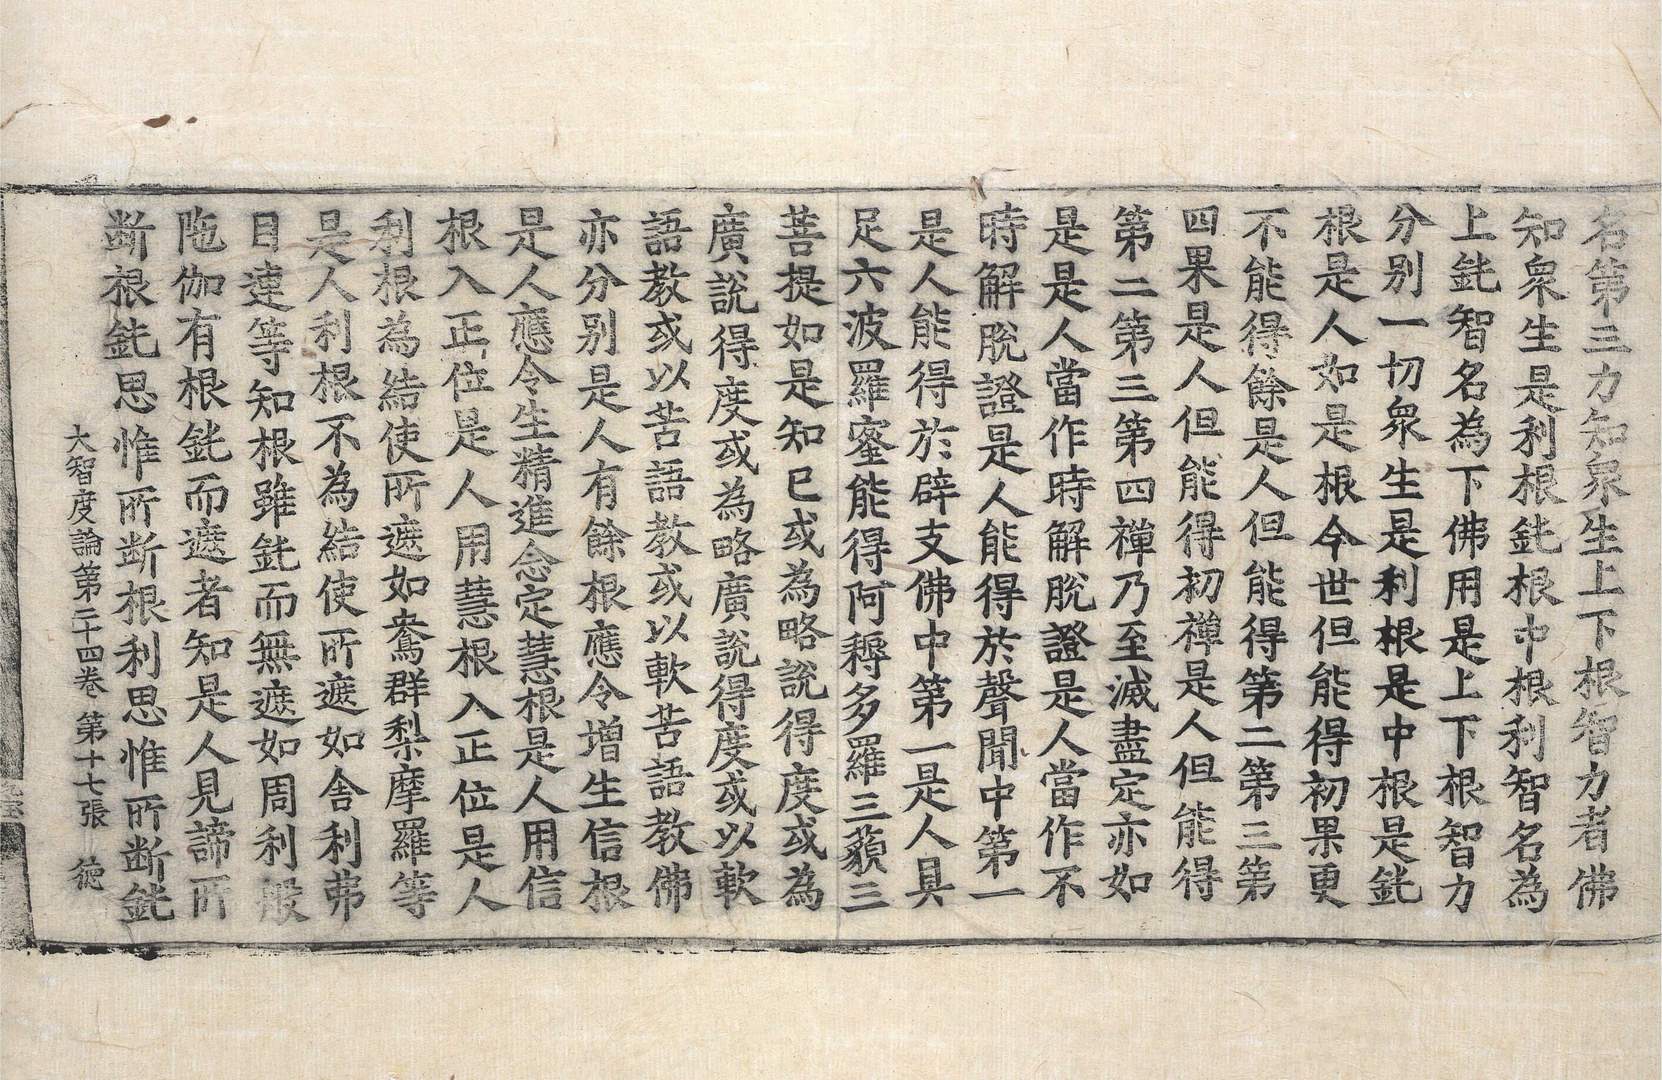 名第三力知衆生上下根智力者佛
知衆生是利根鈍根中根利智名為
上鈍智名為下佛用是上下根智力
分別一切衆生是利根是中根是鈍
根是人如是根今世但能得初果更
不能得餘是人但能得第二第三第
四果是人但能得初禪是人但能得
第二第三第四禪乃至滅盡定亦如
是是人當作時解脫證是人當作不
時解脫證是人能得於聲聞中第一
是人能得於辟支佛中第一是人具
足六波羅蜜能得阿耨多羅三藐三
菩提如是知已或為略說得度或為
廣說得度或為略廣說得度或以軟
語教或以苦語教或以軟苦語教佛
亦分別是人有餘根應令增生信根
是人應令生精進念定慧根是人用信
根入正位是人用慧根入正位是人
利根為結使所遮如鴦群梨摩羅等
是人利根不為結使所遮如舍利弗
目連等知根雖鈍而無遮如周利般
陁伽有根鈍而遮者知是人見諦所
断根鈍思惟所断根利思惟所断鈍
大智度論第二十四卷 第十七張 德